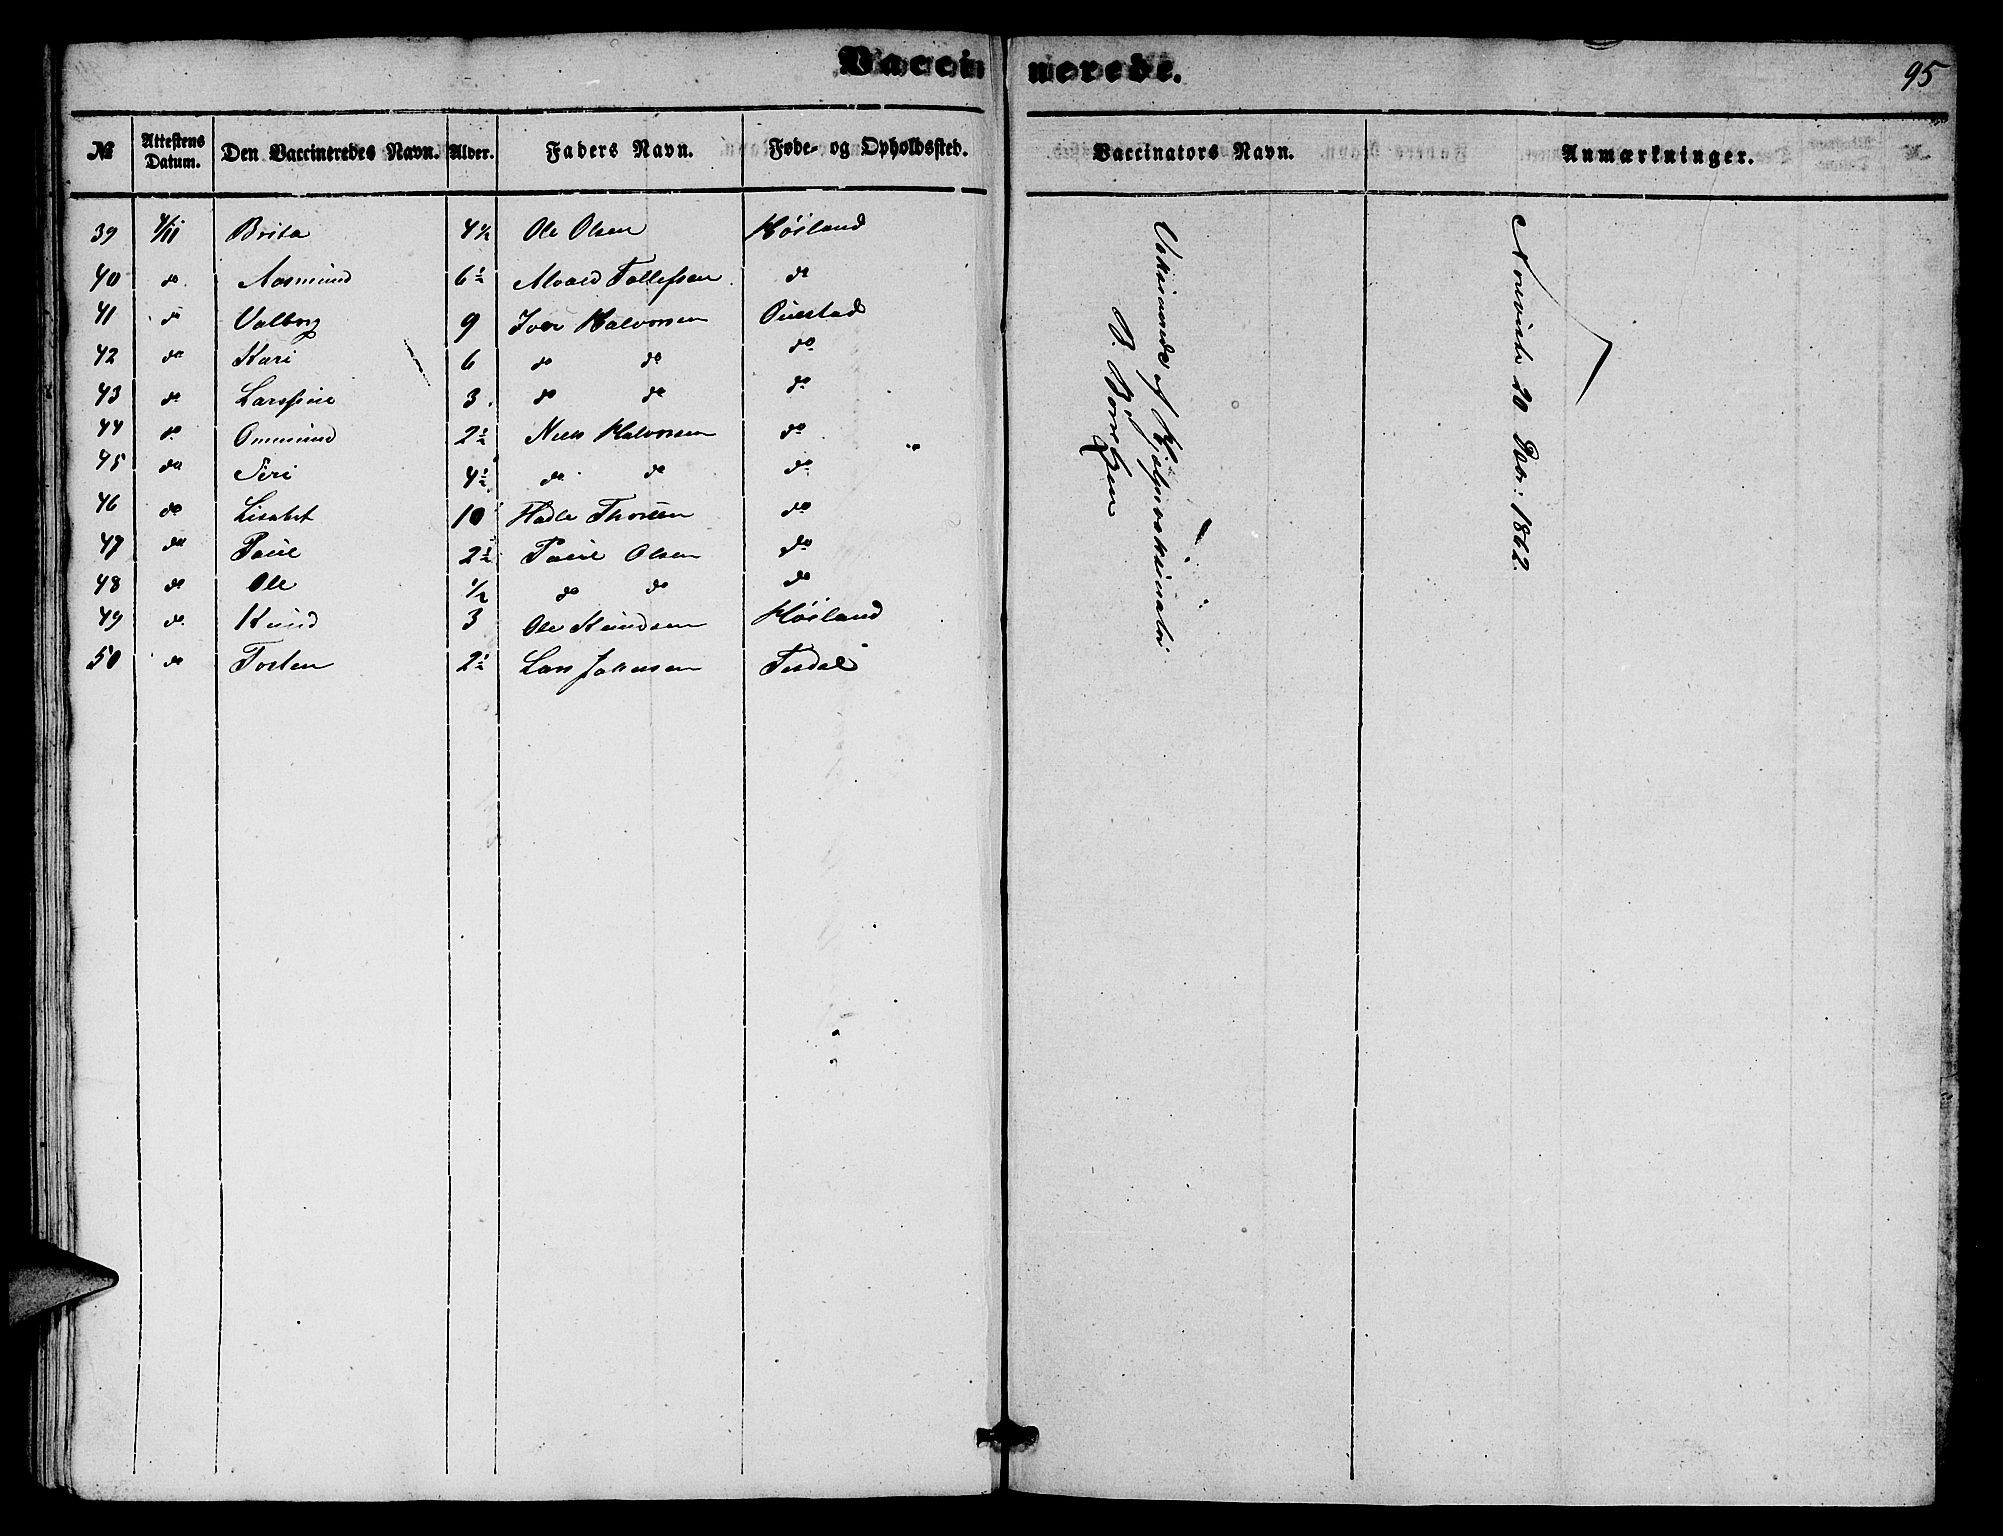 Vaccinerede.
95
№ Attestens Datum. Den Vaccineredes Navn. Alder. Faders Navn. Føde- og Opholdssted. Vaccinators Navn. Anmærkninger.
39 4/11 Brita 4½ Ole Olsen Høiland
40 do Aasmund 6½ Alvald Tollefsen do
41 do Valborg 9 Iver Halvorsen Ouestad
42 do Kari 6 do do do
43 do 3 do do do
44 do Ommund 2½ Niels Halvorsen do
45 do Siri 4½ do do do
46 do Lisabet 10 Hadle Thorsen do
47 do Poul 2½ Poul Olsen do
48 do Ole ½ do do do
49 do Knud 3 Ole Knudsen Høiland
50 do Tosten 2½ Lars Johnsen Tesdal
Vakcinerede af Hjælpevakcinatør
B.
20 Dcbr: 1862.